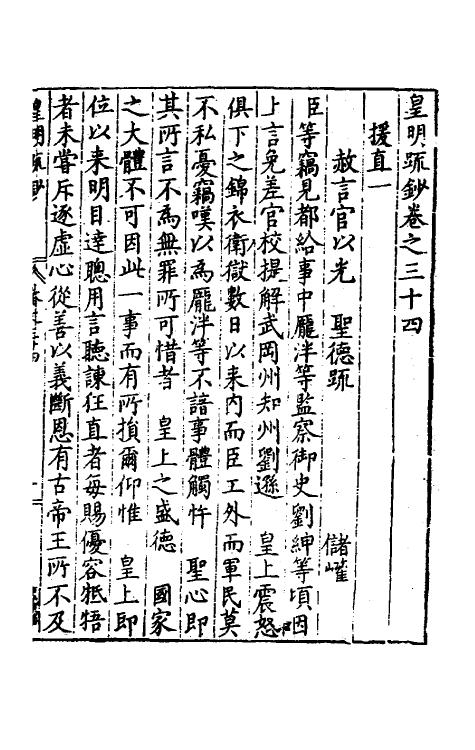 皇明疏鈔卷之三十四
援直一
赦言官以光　聖德疏　儲巏
臣等竊見都給事中龐泮等監察御史劉紳等頃因
上言免差官校提解武岡州知州劉遜　皇上震怒
俱下之錦衣衛獄數日以来内而臣工外而軍民莫
不私憂竊嘆以為龐泮等不諳事體觸忤　聖心即
其所言不為無罪所可惜者　皇上之盛德　國家
之大體不可因此一事而有所損爾仰惟　皇上即
位以来明目達聰用言聽諫狂直者每賜優容抵牾
者未嘗斥逐虚心從善以義斷恩有古帝王所不及
皇明疏鈔